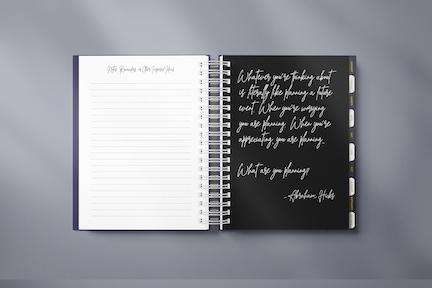 Notes, Reminders, or Other Inspired Ideas
Whatever you're thinking about
is literally like planning a future
event. When you're worrying
you are planning. When you're
appreciating you are planning...
What are you planning?
-Abraham Hicks